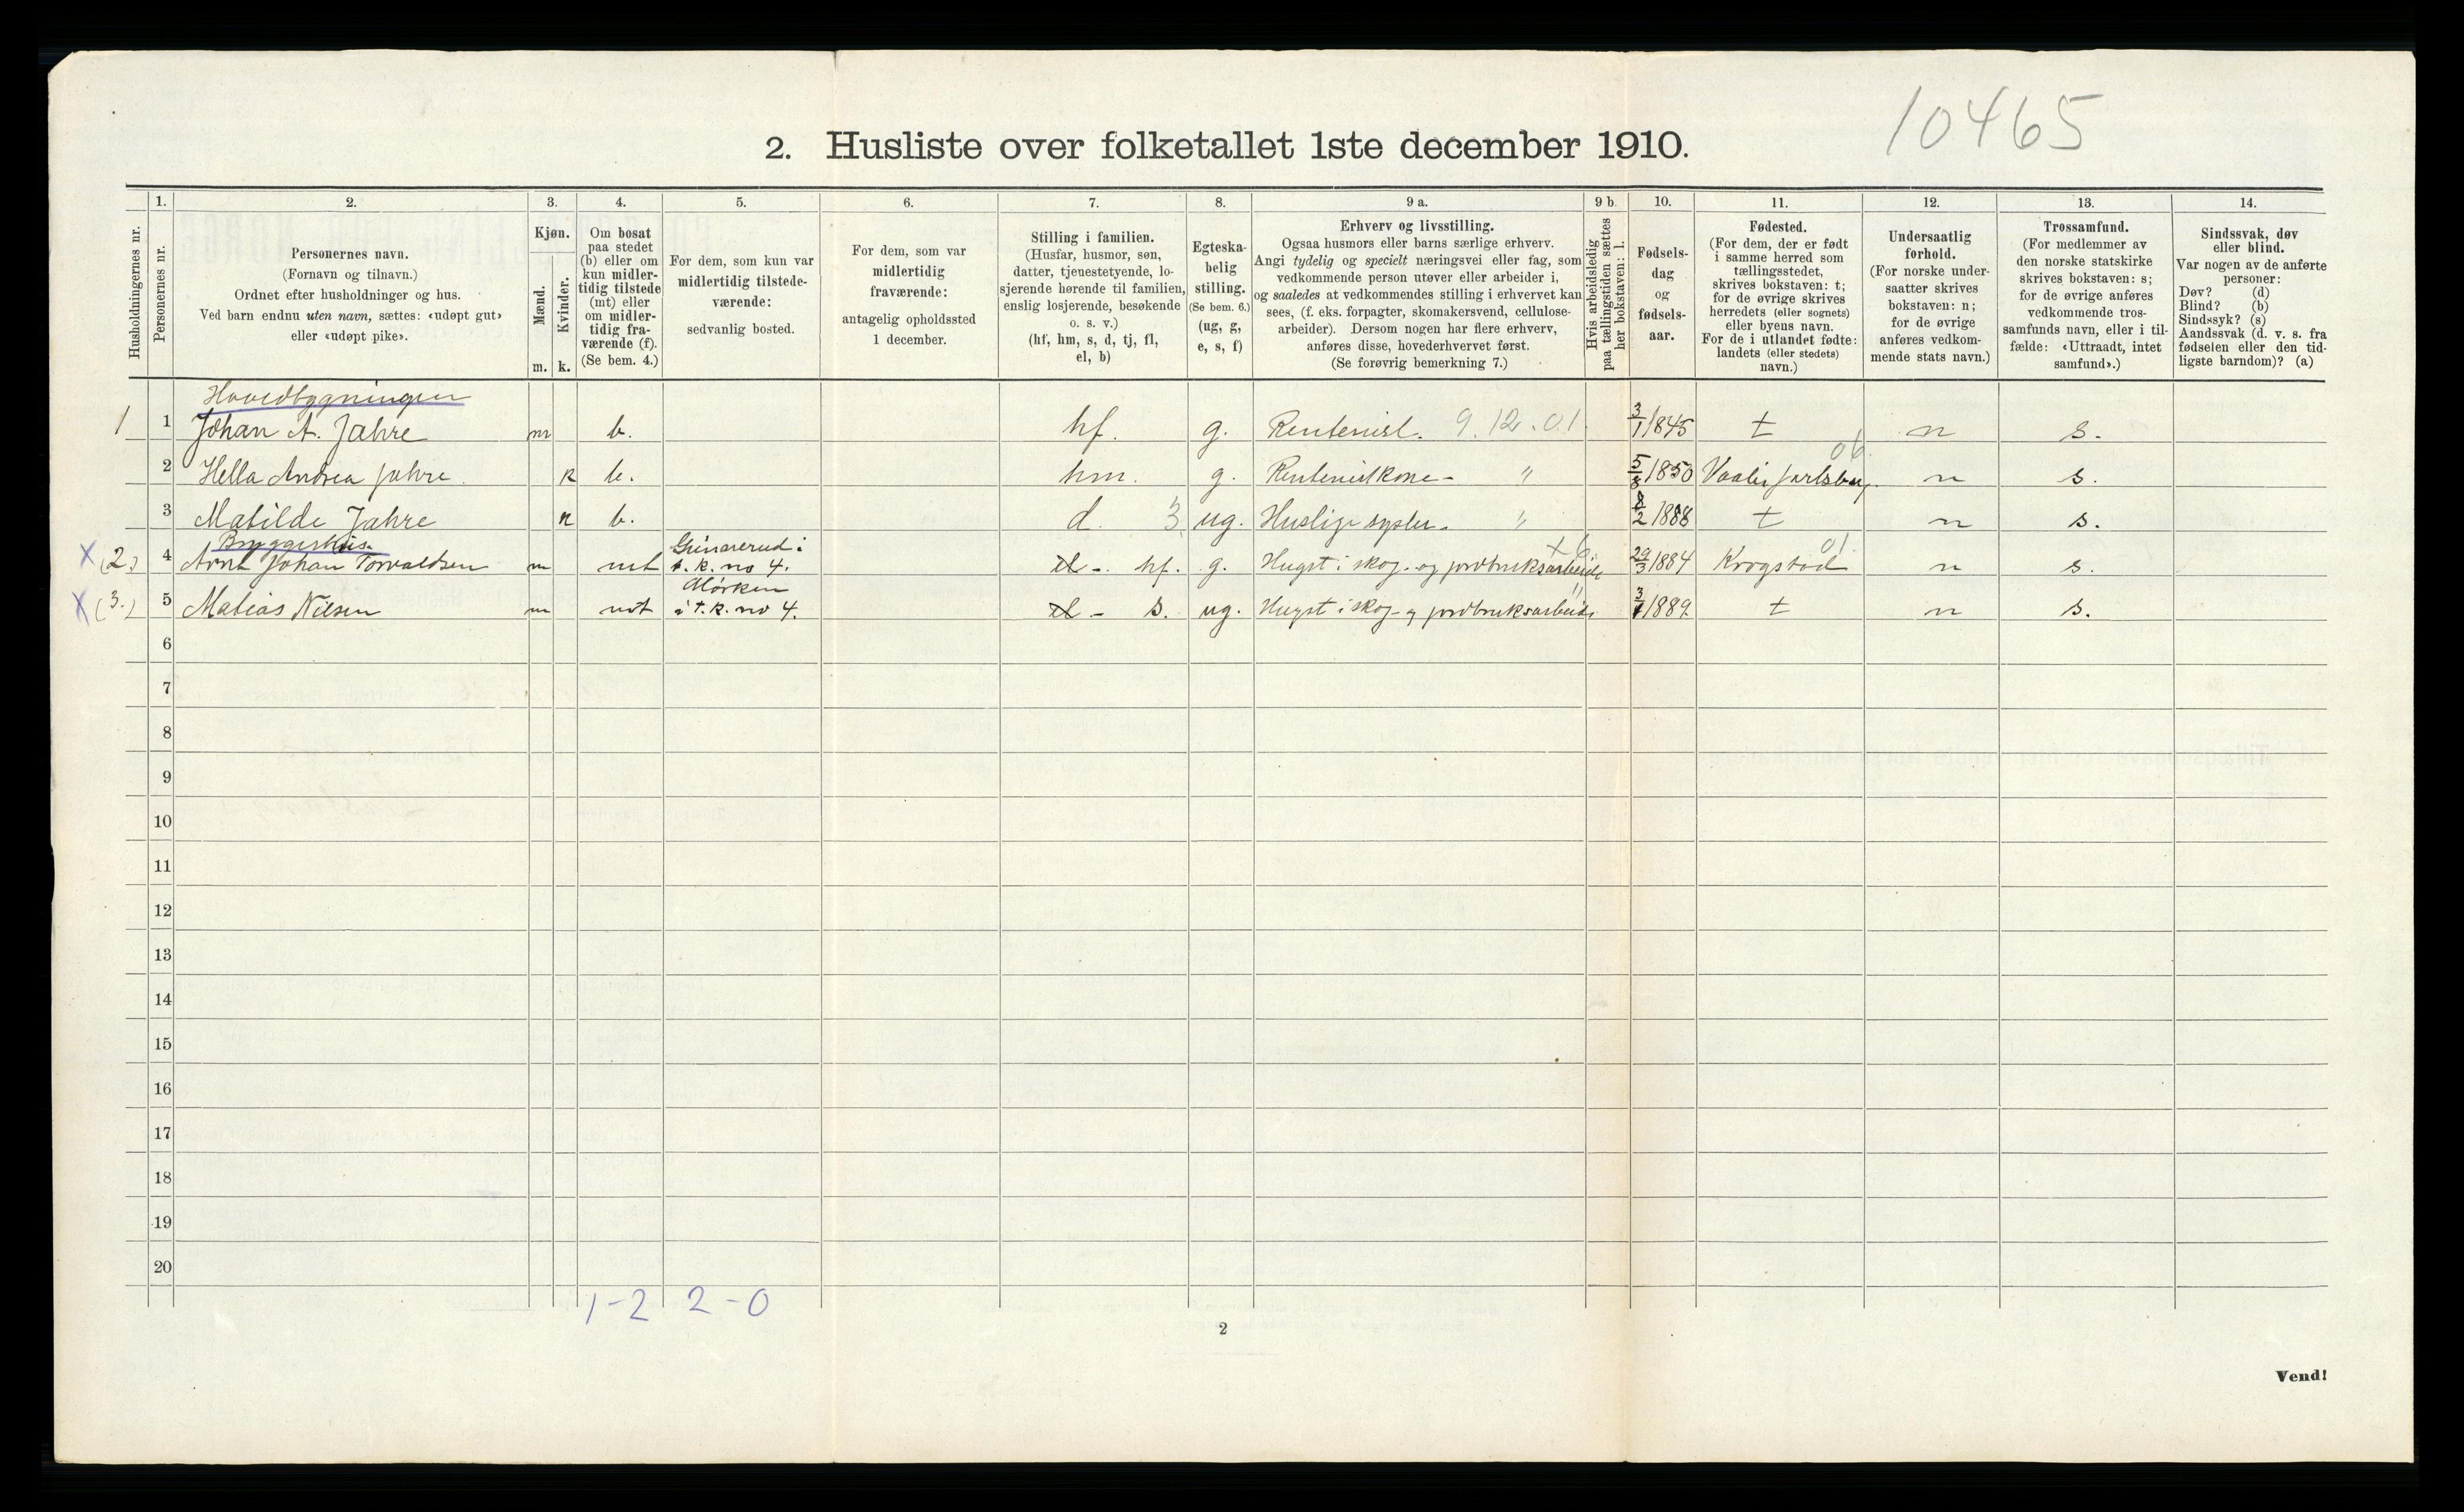 10465
2. Husliste over folketallet 1ste december 1910.
Husholdningernes nr.
1.
Personernes nr.
2.
Personernes navn.
(Fornavn og tilnavn.)
Ordnet efter husholdninger og hus.
Ved barn endnu uten navn, sættes: «udøpt gut»
eller «udøpt pike».
3.
Kjøn.
Mænd.
Kvinder.
m. k.
4.
Om bosat
paa stedet
(b) eller om
kun midler-
tidig tilstede
(mt) eller
om midler-
tidig fra-
værende (f).
(Se bem. 4.)
5.
For dem, som kun var
midlertidig tilstede-
værende:
sedvanlig bosted.
6.
For dem, som var
midlertidig
fraværende:
antagelig opholdssted
1 december.
7.
Stilling i familien.
(Husfar, husmor, søn,
datter, tjenestetyende, lo-
sjerende hørende til familien,
enslig losjerende, besøkende
o. s. v.)
(hf, hm, s, d, tj, fl,
el, b)
8.
Egteska-
belig
stilling.
(Se bem. 6.)
(ug, g,
e, s, f)
9 a.
Erhverv og livsstilling.
Ogsaa husmors eller barns særlige erhverv.
Angi tydelig og specielt næringsvei eller fag, som
vedkommende person utøver eller arbeider i,
og saaledes at vedkommendes stilling i erhvervet kan
sees, (f. eks. forpagter, skomakersvend, cellulose-
arbeider). Dersom nogen har flere erhverv,
anføres disse, hovederhvervet først.
(Se forøvrig bemerkning 7.)
9 b.
Hvis arbeidsledig
paa tællingstiden sættes
her bokstaven: l.
10.
Fødsels-
dag
og
fødsels-
aar.
11.
Fødested.
(For dem, der er født
i samme herred som
tællingsstedet,
skrives bokstaven: t;
for de øvrige skrives
herredets (eller sognets)
eller byens navn.
For de i utlandet fødte:
landets (eller stedets)
navn.)
12.
Undersaatlig
forhold.
(For norske under-
saatter skrives
bokstaven: n;
for de øvrige
anføres vedkom-
mende stats navn.)
13.
Trossamfund.
(For medlemmer av
den norske statskirke
skrives bokstaven: s;
for de øvrige anføres
vedkommende tros-
samfunds navn, eller i til-
fælde: «Uttraadt, intet
samfund».)
14.
Sindssvak, døv
eller blind.
Var nogen av de anførte
personer:
Døv? (d)
Blind? (b)
Sindssyk? (s)
Aandssvak (d. v. s. fra
fødselen eller den tid-
ligste barndom)? (a)
Hovedbygningen
1 1 Johan A. Jahre m b. hf. g. Rentenist. 9.12.01 3/1 1845 t n s.
06
2 Hella Andrea Jahre k b. hm. g. Rentenistkone - " 5/8 1850 Vaale Jarlsberg n s.
3 Matilde Jahre k b. d. 3 ug. Huslige sysler. " 8/2 1888 t n s.
Bryggerhus. Grinarerud i x6 01
x (2.) 4 Arnt Johan Torvaldsen m mt t.k. no 4. el -. hf. g. Hugst i skog- og jordbruksarbeide 29/3 1884 Krogstad n s.
Mørken "
x (3.) 5 Matias Nilsen m mt i t.k. no 4. el - s. ug. Hugst i skog- og jordbruksarbeide 1889 t n s.
6
7
8
9
10
11
12
13
14
15
16
17
18
19
20
1-2 2-0
2
Vend!